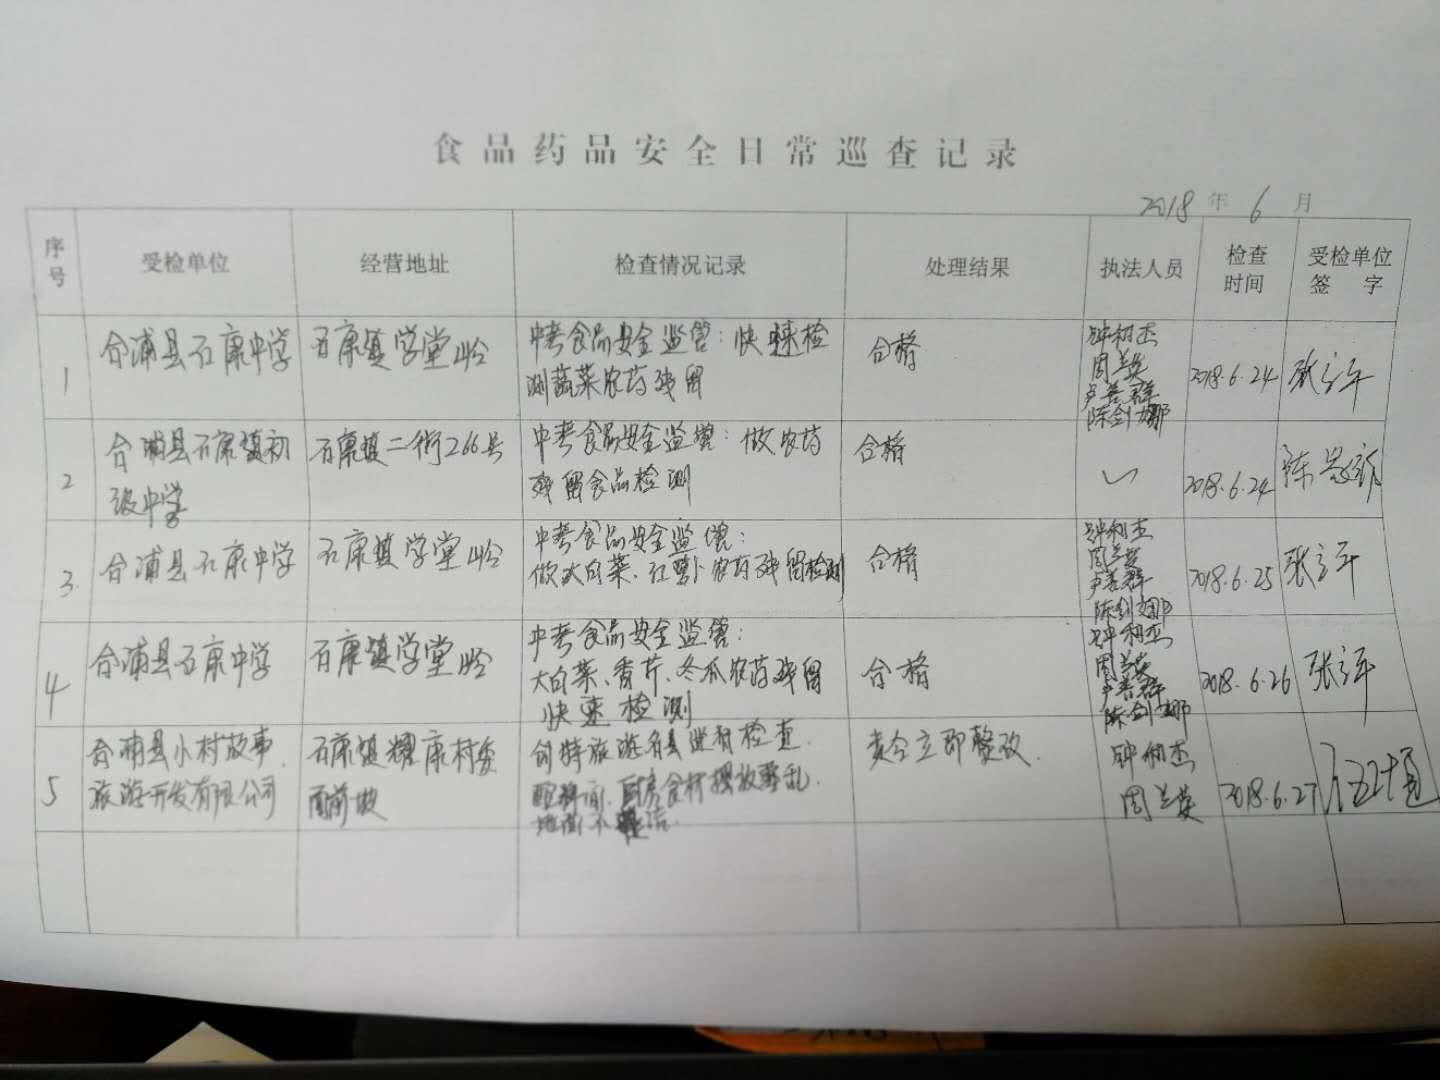 食品药品安全日常巡查记录
2018 年 6 月
序号 受检单位 经营地址 检查情况记录 处理结果 执法人员 检查时间 受检单位签字
1 合浦县石康中学 石康镇学堂岭 中考食品安全监管：快速检 合格 钟利杰
测蔬菜农药残留 周兰英 2018.6.24
陈剑娜
2 合浦县石康镇初 石康镇二街266号 中考食品安全监管：做农药 合格
级中学 残留食品检测 2018.6.24
3 合浦县石康中学 石康镇学堂岭 中考食品安全监管： 合格 钟利杰
做大白菜、红萝卜农药残留检测 周兰英 2018.6.25
陈剑娜
4 合浦县石康中学 石康镇学堂岭 中考食品安全监管： 合格 钟利杰
大白菜、香芹、冬瓜农药残留 周兰英 2018.6.26
快速检测 陈剑娜
5 合浦县小村故事 石康镇耀康村委 旅游 检查 责令立即整改. 钟利杰
旅游开发有限公司 面前坡 厨房食材摆放零乱. 周兰英 2018.6.27
地面不